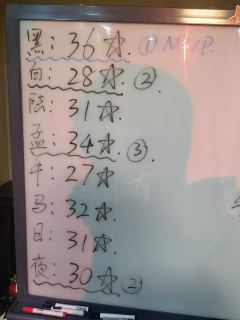 黑: 36☆. ① MVP.
白: 28☆. ②
陆: 31☆.
孟: 34☆. ③
牛: 27☆
马: 32☆.
日: 31☆.
夜: 30☆. ②